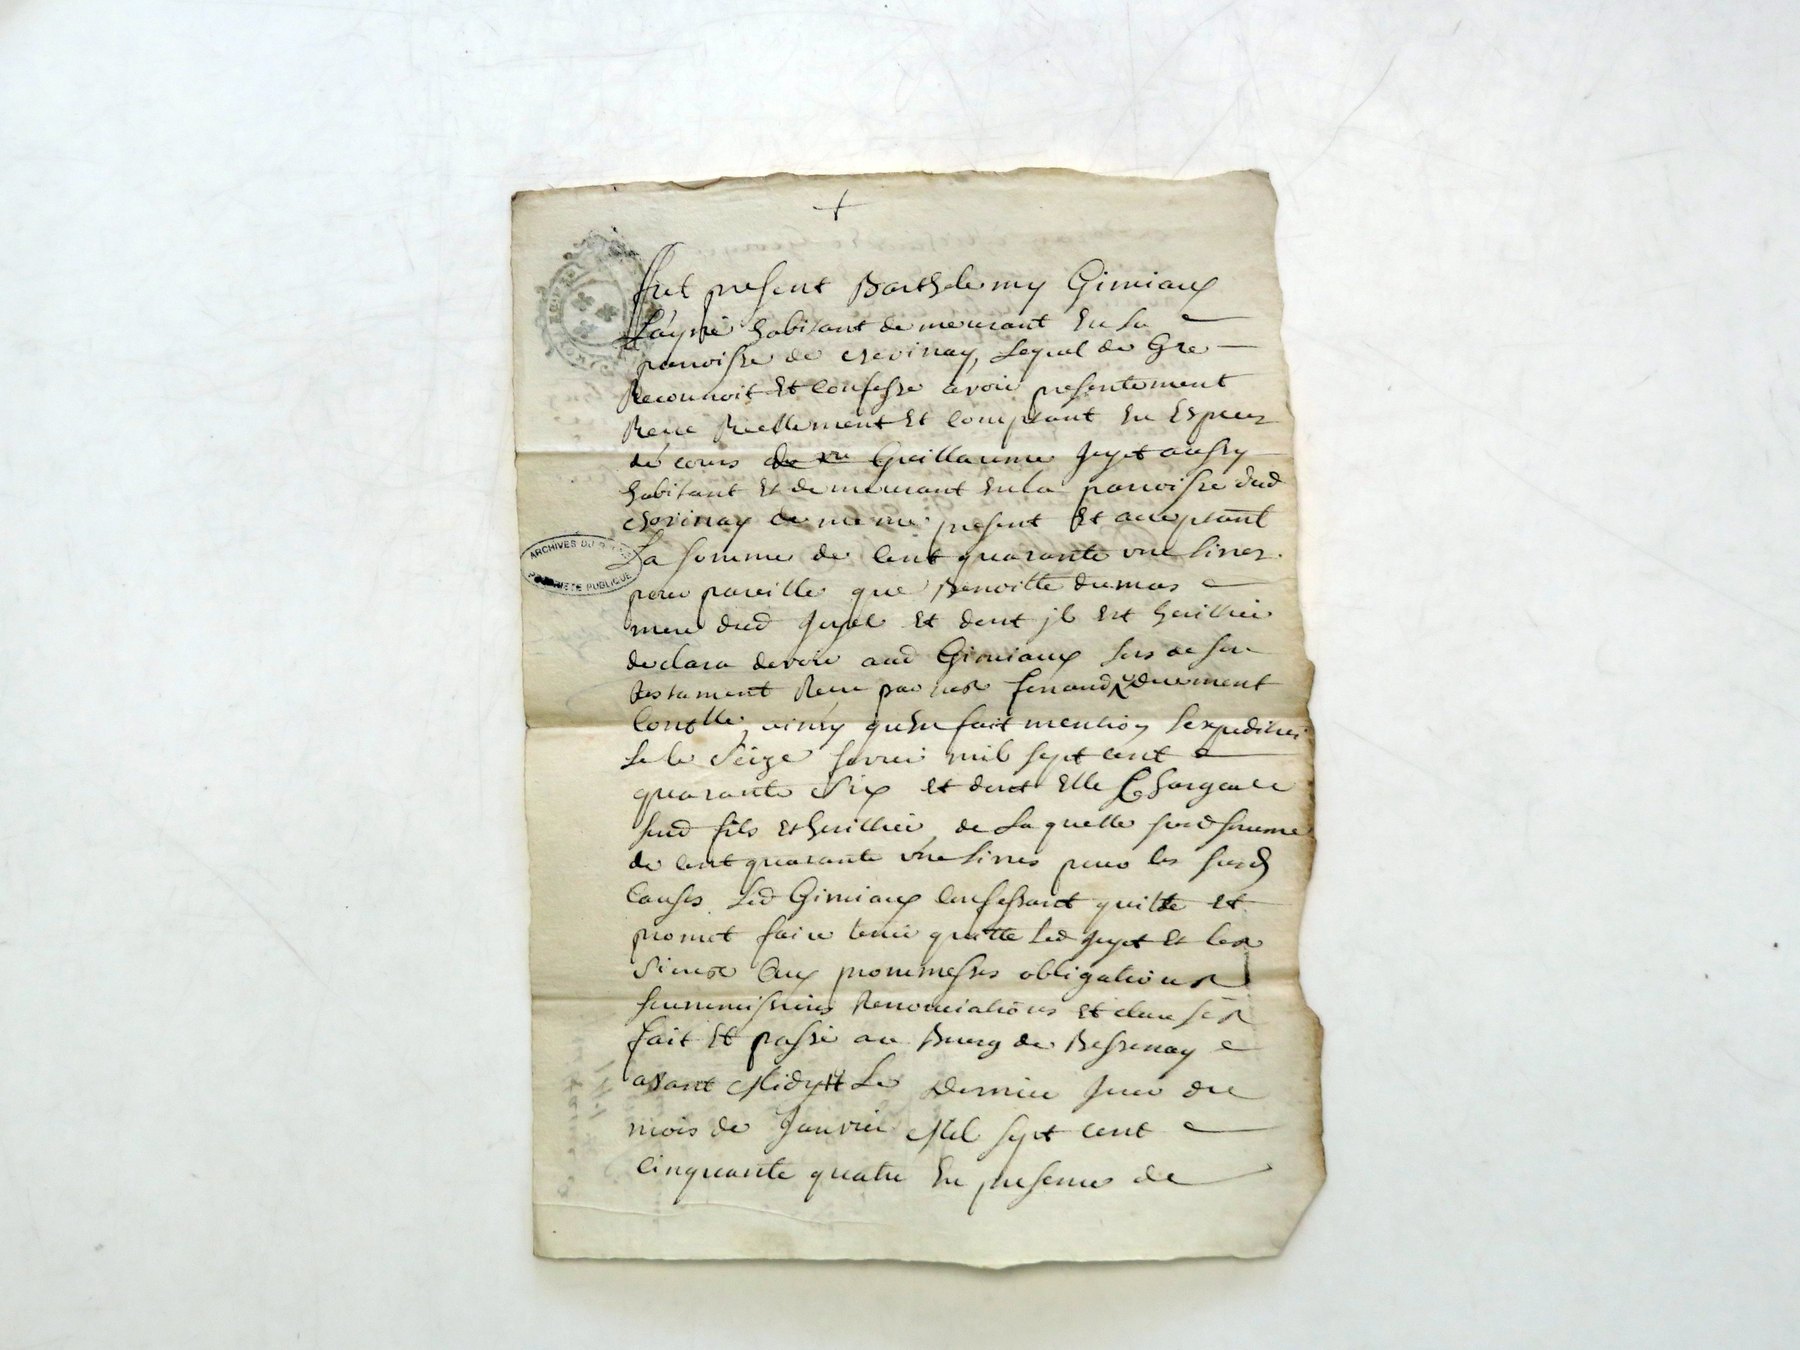 fut present Barthelemy Gimiaux
L'ayné habitant demeurant En La
parroisse de chevinay, Lequel de Gre
Reconnoit Et Confesse avoir presentement
Receu Reellement Et Comptant En Espces
de cours Guillaume Juyet aussy
habitant Et demeurant En la parroisse dud
chevinay de meme present Et acceptant
La somme de Cent quarante une Livres
pour pareille que Benoitte dumas
mere dud Juyet Et dont jl Est heritier
declara devoir aud Gimiaux Lors de son
testament Receu par
ainsy qu'En fait mention L'expedition
Le Seize fevrier mil sept cent
quarante Six Et dont Elle Chargea Le
sud fils Et heritier, de Laquelle susd somme
de Cent quarante une Livres pour les susd
Causes Led Gimiaux Confessant quitte Et
promet faire tenir quitte Led Juyet Et les
Siens aux promesses obligations
soummissions Renonciations Et clauses
fait Et passé au Bourg de Bessenay
avant Midy Le Dernier Jour du
mois de Janvier Mil sept cent
Cinquante quatre En presence de
ARCHIVES DU
PROPRIETE PUBLIQUE